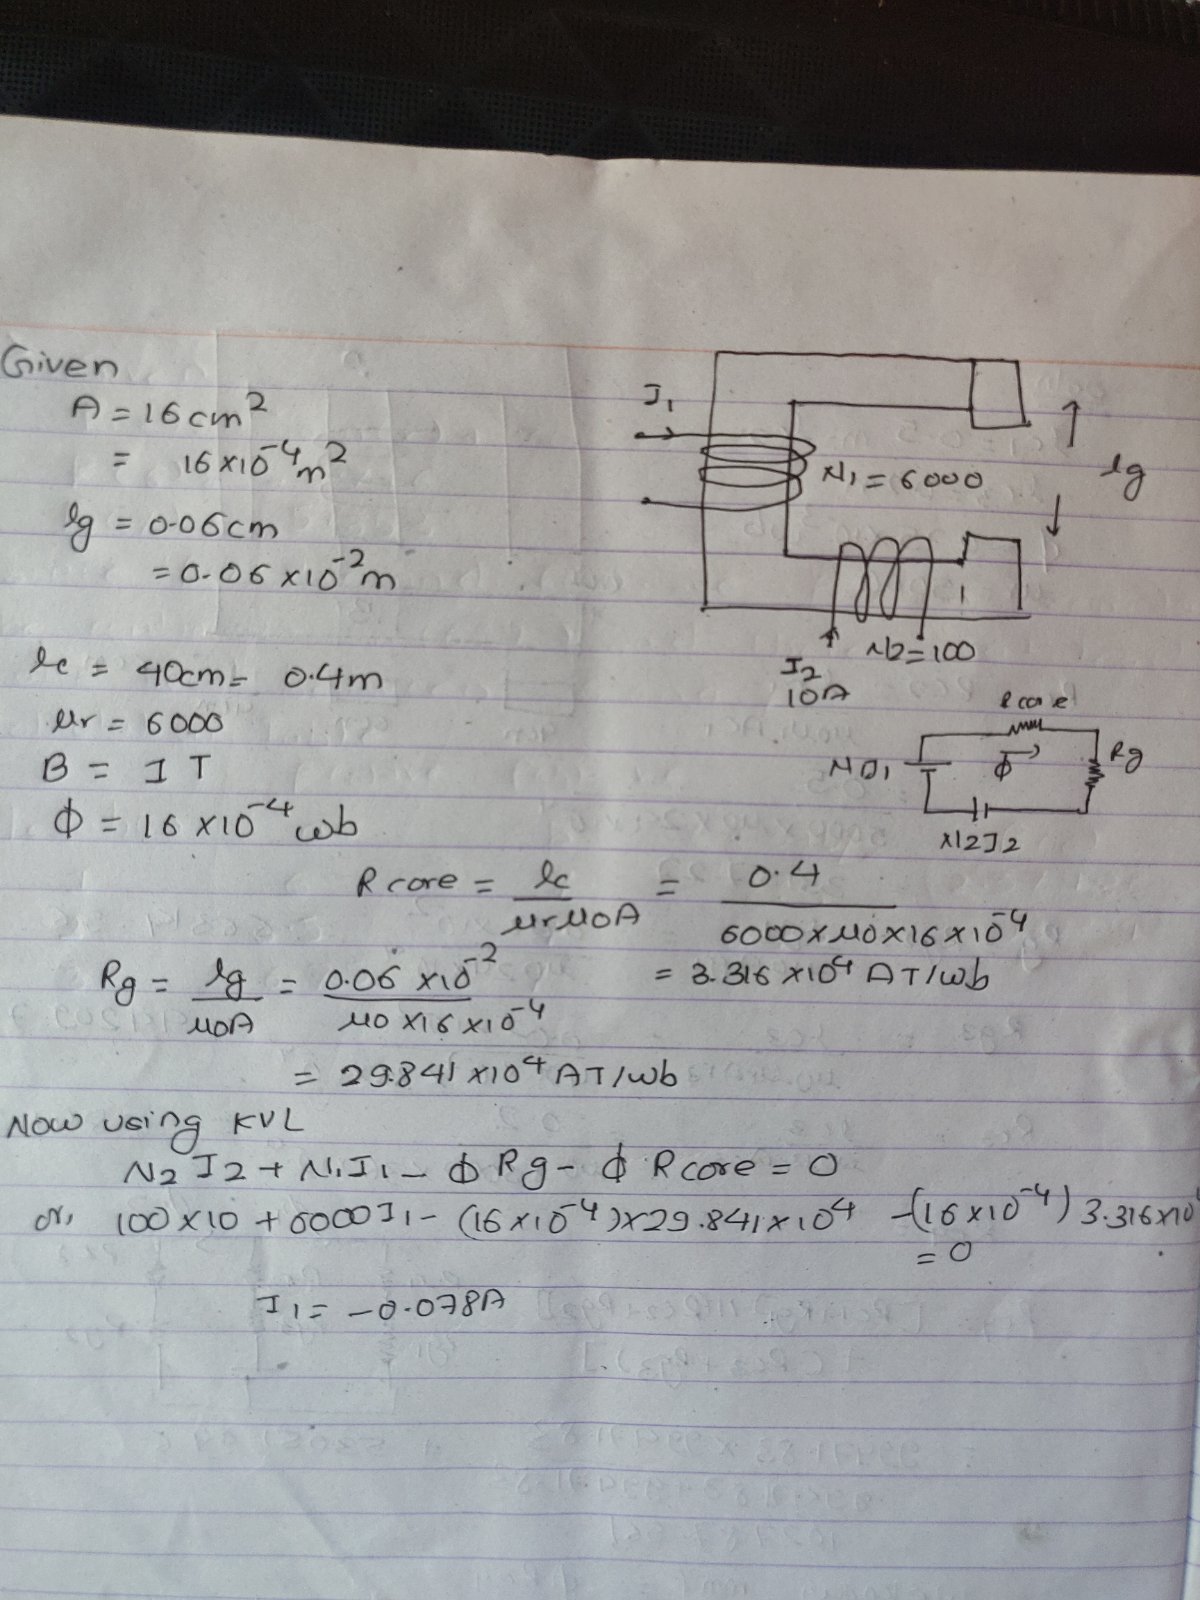 Given
A = 16 cm²
= 16×10⁻⁴ m²
lg = 0.06 cm
= 0.06 ×10⁻² m
lc = 40cm = 0.4m
μr = 6000
B = 1 T
Φ = 16 ×10⁻⁴ wb
I1
N1 = 6000
lg
N2 = 100
I2
10A
R core
Φ
Rg
N2I2
R core = lc / μrμ0A = 0.4 / 6000×μ0×16×10⁻⁴
= 3.316 ×10⁴ AT/wb
Rg = lg / μ0A = 0.06 ×10⁻² / μ0 ×16 ×10⁻⁴
= 29.841 ×10⁴ AT/wb
Now using KVL
N2 I2 + N1I1 - Φ Rg - Φ R core = 0
or, 100×10 + 6000I1 - (16×10⁻⁴)×29.841×10⁴ - (16×10⁻⁴) 3.316×10
= 0
I1 = -0.078A